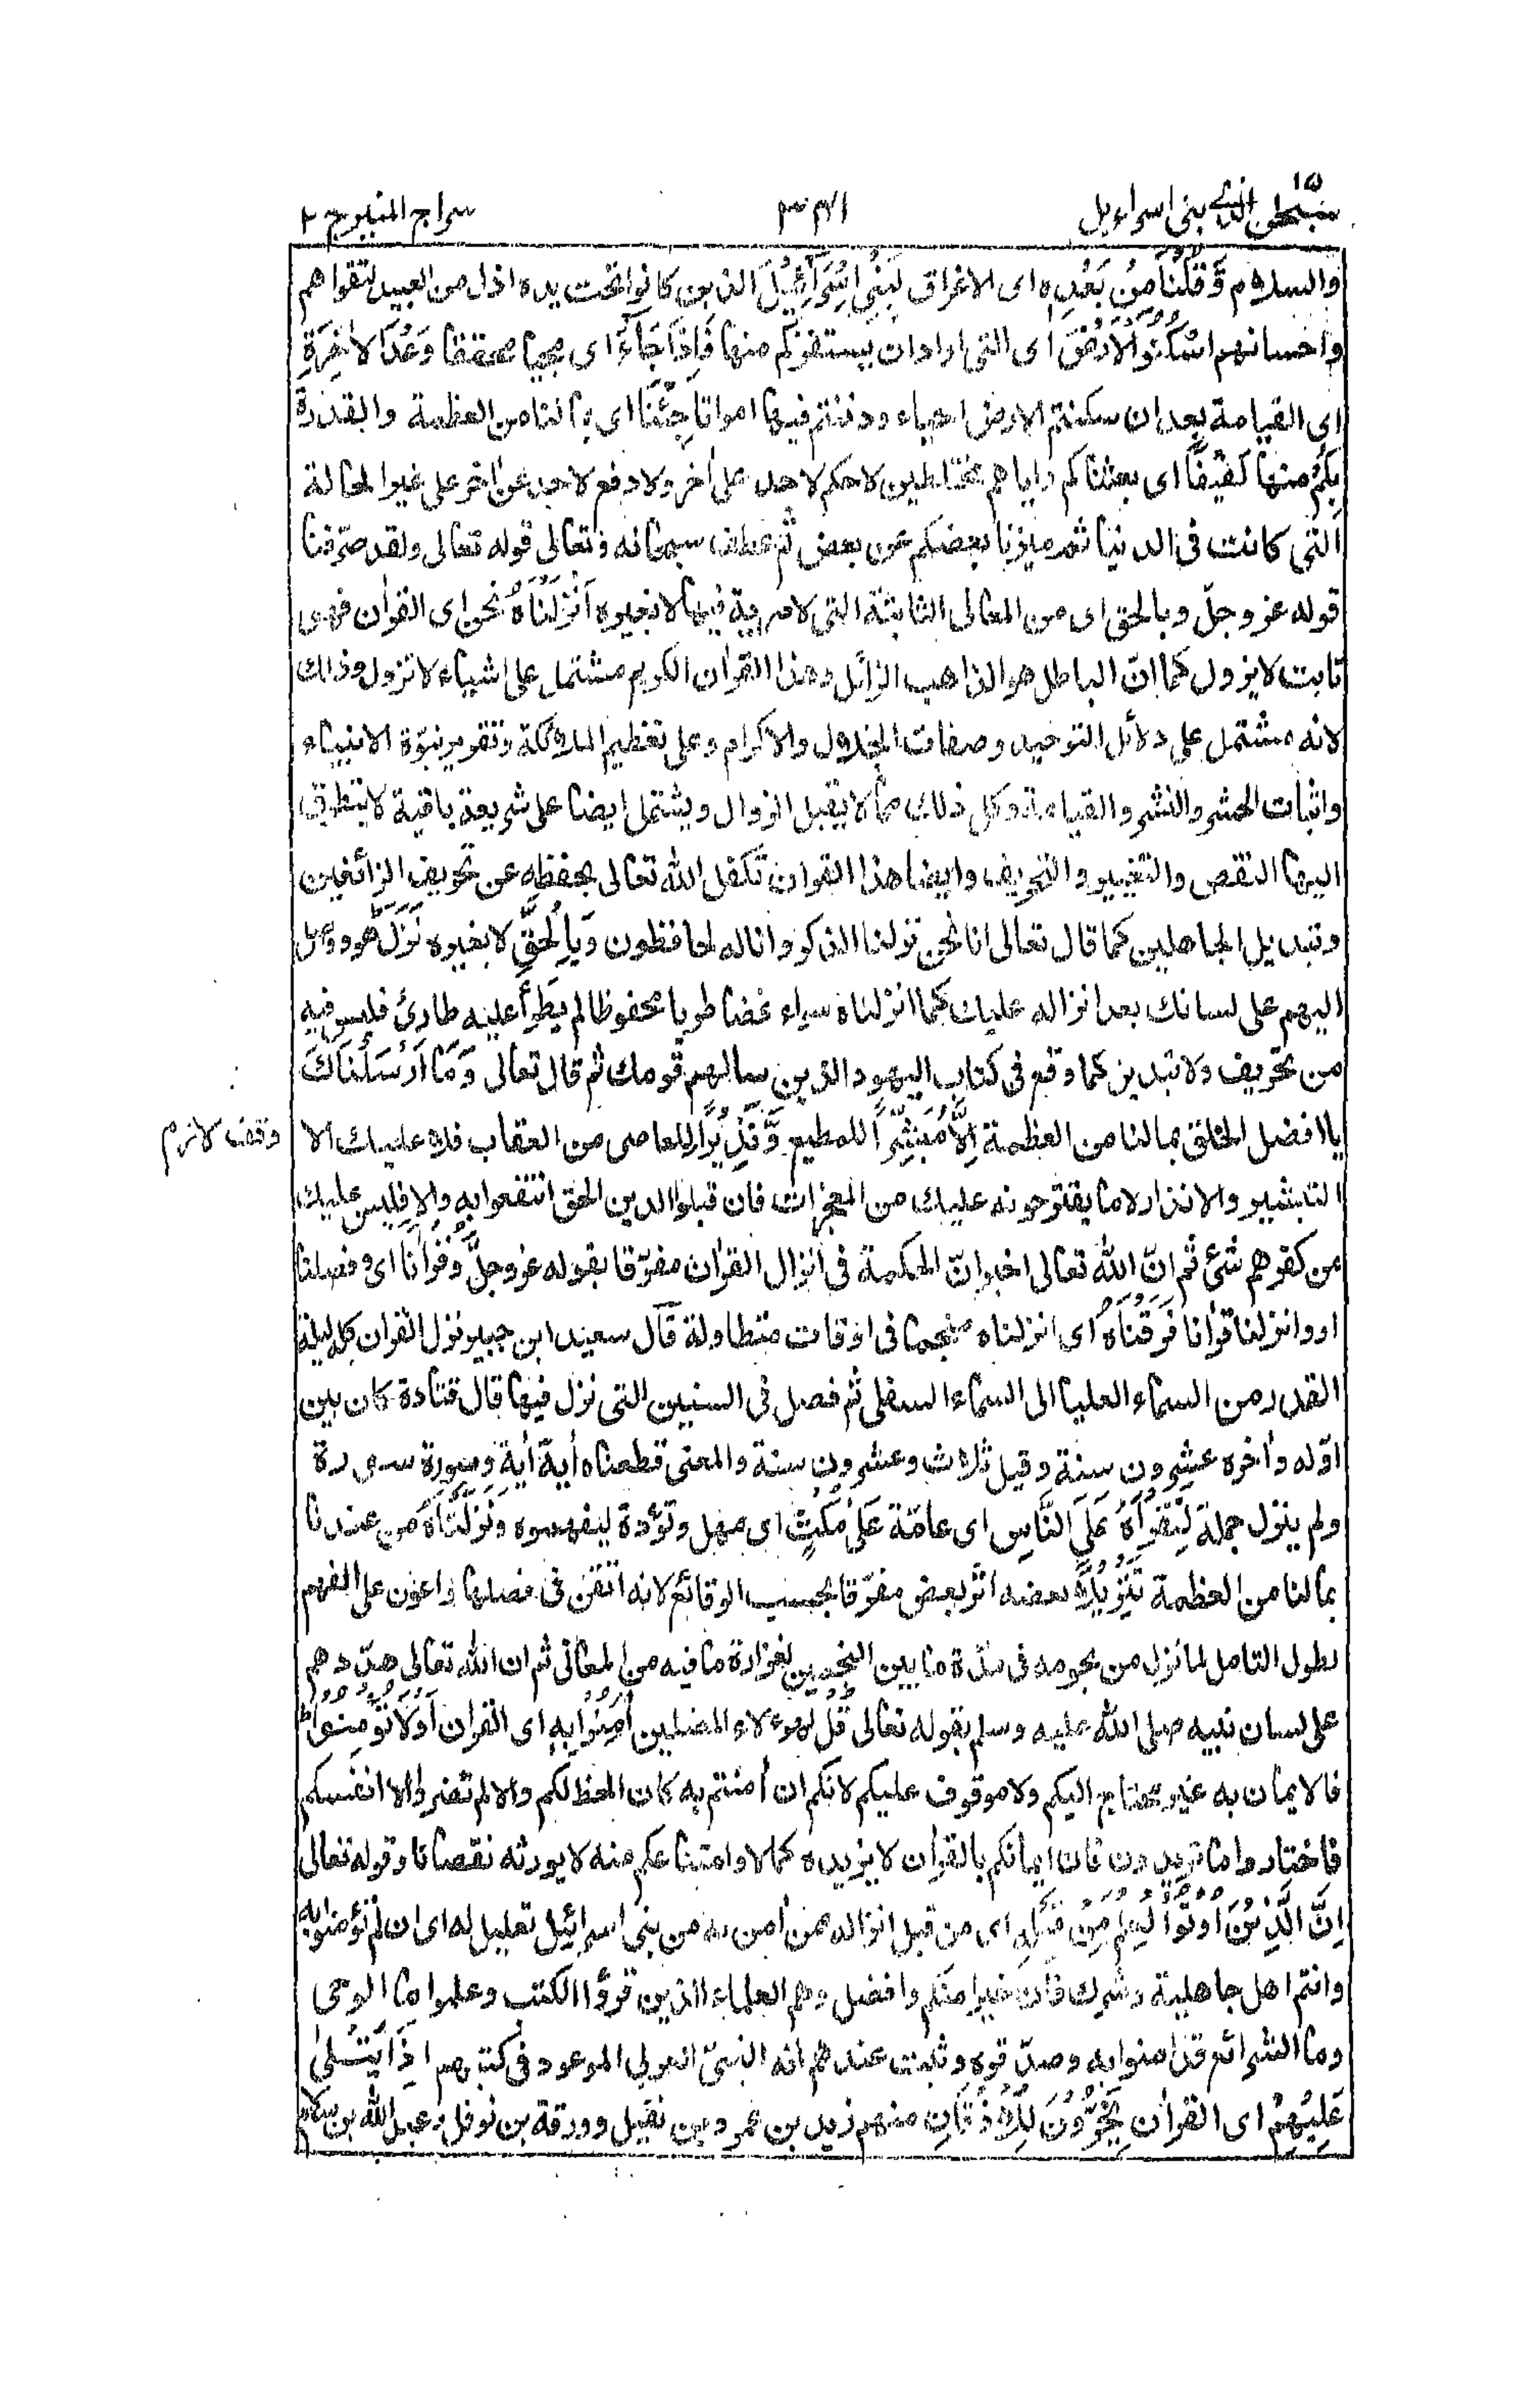 سبحٰن الذی ١٥ بنی اسراءیل
٣٤١
سراج المنیر ج ٢
والسلام وَّقُلْنَا مِنْ بَعْدِهٖ ای الاغراق لِبَنِیْ اِسْرَآءِیْلَ الذین کانوا تحت یده اذل من العبید لتقواهم
واحسانهم اسْكُنُوا الْاَرْضَ ای التی اراد ان یستفزکم منها فَاِذَا جَآءَ ای مجیا محققا وَعْدُ الْاٰخِرَةِ
ای القیامة بعد ان سکنتم الارض احیاء ودفنتم فیها امواتا جِئْنَا ای بمالنا من العظمة والقدرة
بِكُمْ منها لَفِیْفًا ای بعثناکم وایاهم مختلطین لاحکم لاحد علی اٰخر ولا دفع لاحد عن اٰخر علی غیر الحالة
التی کانت فی الدنیا ثم میزنا بعضکم عن بعض ثم عطف سبحانه وتعالی قوله تعالی ولقد صرّفنا
قوله عز وجلّ وبالحق ای من المعانی الثابتة التی لا مریة فیها لا بغیره اَنْزَلْنَاهُ نحن ای القراٰن فهی
ثابت لایزول کما انّ الباطل هو الذاهب الزائل وهذا القراٰن الکریم مشتمل علی اشیاء لا تزول وذالك
لانه مشتمل علی دلائل التوحید وصفات الجلال والاکرام وعلی تعظیم الملائکة وتقریر نبوّة الانبیاء
واثبات الحشر والنشر والقیامة وکل ذلك مما لا یقبل الزوال ویشتمل ایضا علی شریعة باقیة لا یتطرق
الیها النقص والتغییر والتحریف وایضا هذا القراٰن تکفل الله تعالی بحفظه عن تحریف الزائغین
وتبدیل الجاهلین کما قال تعالی انا نحن نزلنا الذکر وانا له لحافظون وَبِالْحَقِّ لا بغیره نَزَلَ هو ووصل
الیهم علی لسانك بعد انزاله علیك کما انزلناه سواء غضا طریا محفوظا لم یطرأ علیه طارئ فلیس فیه
من تحریف ولا تبدیل کما وقع فی کتاب الیهود الذین سالهم قومك ثم قال تعالی وَمَا اَرْسَلْنَاكَ
یا افضل الخلق بمالنا من العظمة اِلَّا مُبَشِّرًا للمطیع وَّنَذِیْرًا للعاصی من العقاب فلا علیك الا
وقف لازم
التبشیر والانذار لا ما یقترحونه علیك من المعجزات فان قبلوا الدین الحق انتفعوا به والا فلیس علیك
من کفرهم شئ ثم انّ الله تعالی اخبر انّ الحکمة فی انزال القراٰن مفرّقا بقوله عز وجلّ وَقُرْاٰنًا ای وفصلنا
او وانزلنا قراٰنا فَرَقْنَاهُ ای انزلناه منجما فی اوقات متطاولة قال سعید ابن جبیر نزل القراٰن کله لیلة
القدر من السماء العلیا الی السماء السفلی ثم فصل فی السنین التی نزل فیها قال قتادة کان بین
اوّله واٰخره عشرون سنة وقیل ثلاث وعشرون سنة والمعنی قطعناه اٰیة اٰیة وسورة سورة
ولم ینزل جملة لِتَقْرَاَهُ عَلَی النَّاسِ ای عامّة عَلٰی مُكْثٍ ای مهل وتؤدة لیفهموه وَنَزَّلْنَاهُ من عندنا
بمالنا من العظمة تَنْزِیْلًا بعضه اثر بعض مفرّقا بحسب الوقائع لانه اتقن فی فصلها واعون علی الفهم
لطول التامل لما نزل من نجومه فی مدّة ما بین النجمین لغزارة ما فیه من المعانی ثم ان الله تعالی هدّدهم
علی لسان نبیه صلی الله علیه وسلم بقوله تعالی قُلْ لهؤلاء المضلین اٰمِنُوْا بِهٖ ای القراٰن اَوْ لَا تُؤْمِنُوْا
فالایمان به غیر محتاج الیکم ولا موقوف علیکم لانکم ان اٰمنتم به کان الحظ لکم والا لم تضروا الا انفسکم
فاختاروا ما تریدون فان ایمانکم بالقراٰن لا یزیده کمالا وامتناعکم منه لا یورثه نقصانا وقوله تعالی
اِنَّ الَّذِیْنَ اُوْتُوا الْعِلْمَ مِنْ قَبْلِهٖ ای من قبل انزاله ممن اٰمن به من بنی اسرائیل تعلیل له ای ان لم تؤمنوا به
وانتم اهل جاهلیة وشرك فان خیرا منکم وافضل وهم العلماء الذین قرؤا الکتب وعلموا ما الوحی
وما الشرائع قد اٰمنوا به وصدّقوه وثبت عندهم انه النبیّ العربی الموعود فی کتبهم اِذَا یُتْلٰی
عَلَیْهِمْ ای القراٰن یَخِرُّوْنَ لِلْاَذْقَانِ منهم زید بن عمرو بن نفیل وورقة بن نوفل وعبد الله بن سلام